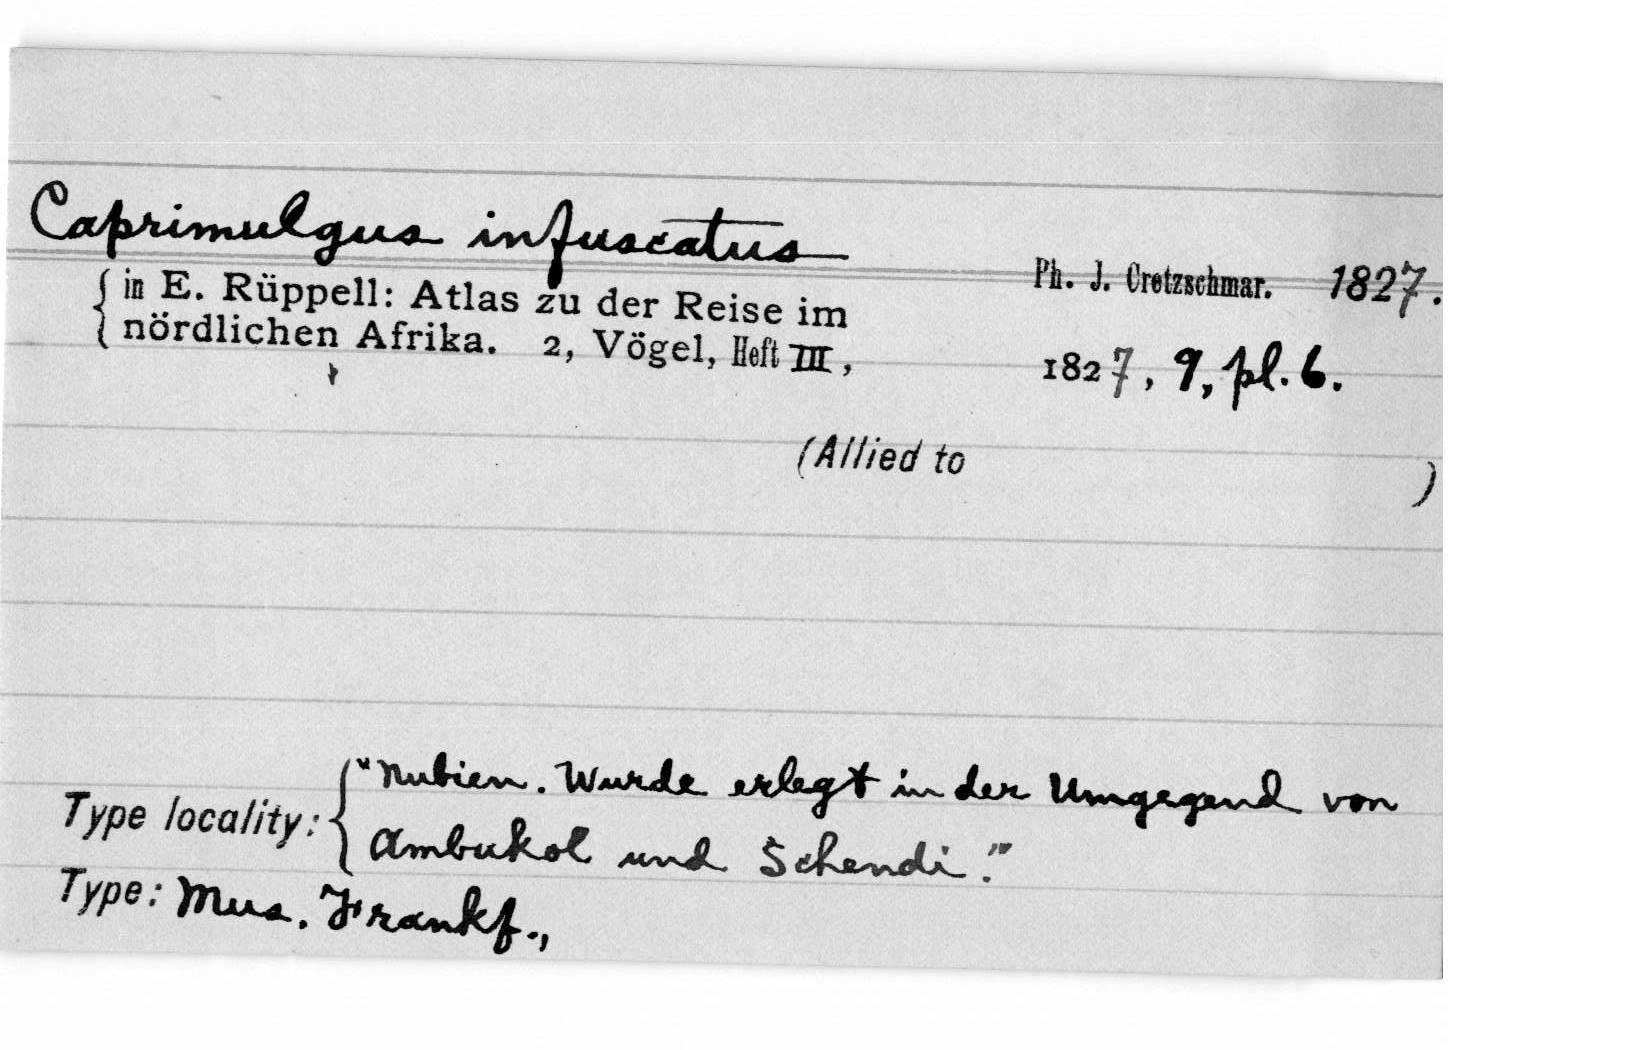 Caprimulgus infuscatus
Ph. J. Cretzschmar. 1827.
{ in E. Rüppell: Atlas zu der Reise im
nördlichen Afrika. 2, Vögel, Heft III, 1827, 9, pl. 6.
(Allied to )
Type locality: { "Nubien. Wurde erlegt in der Umgegend von
Ambukol und Schendi."
Type: Mus. Frankf.,